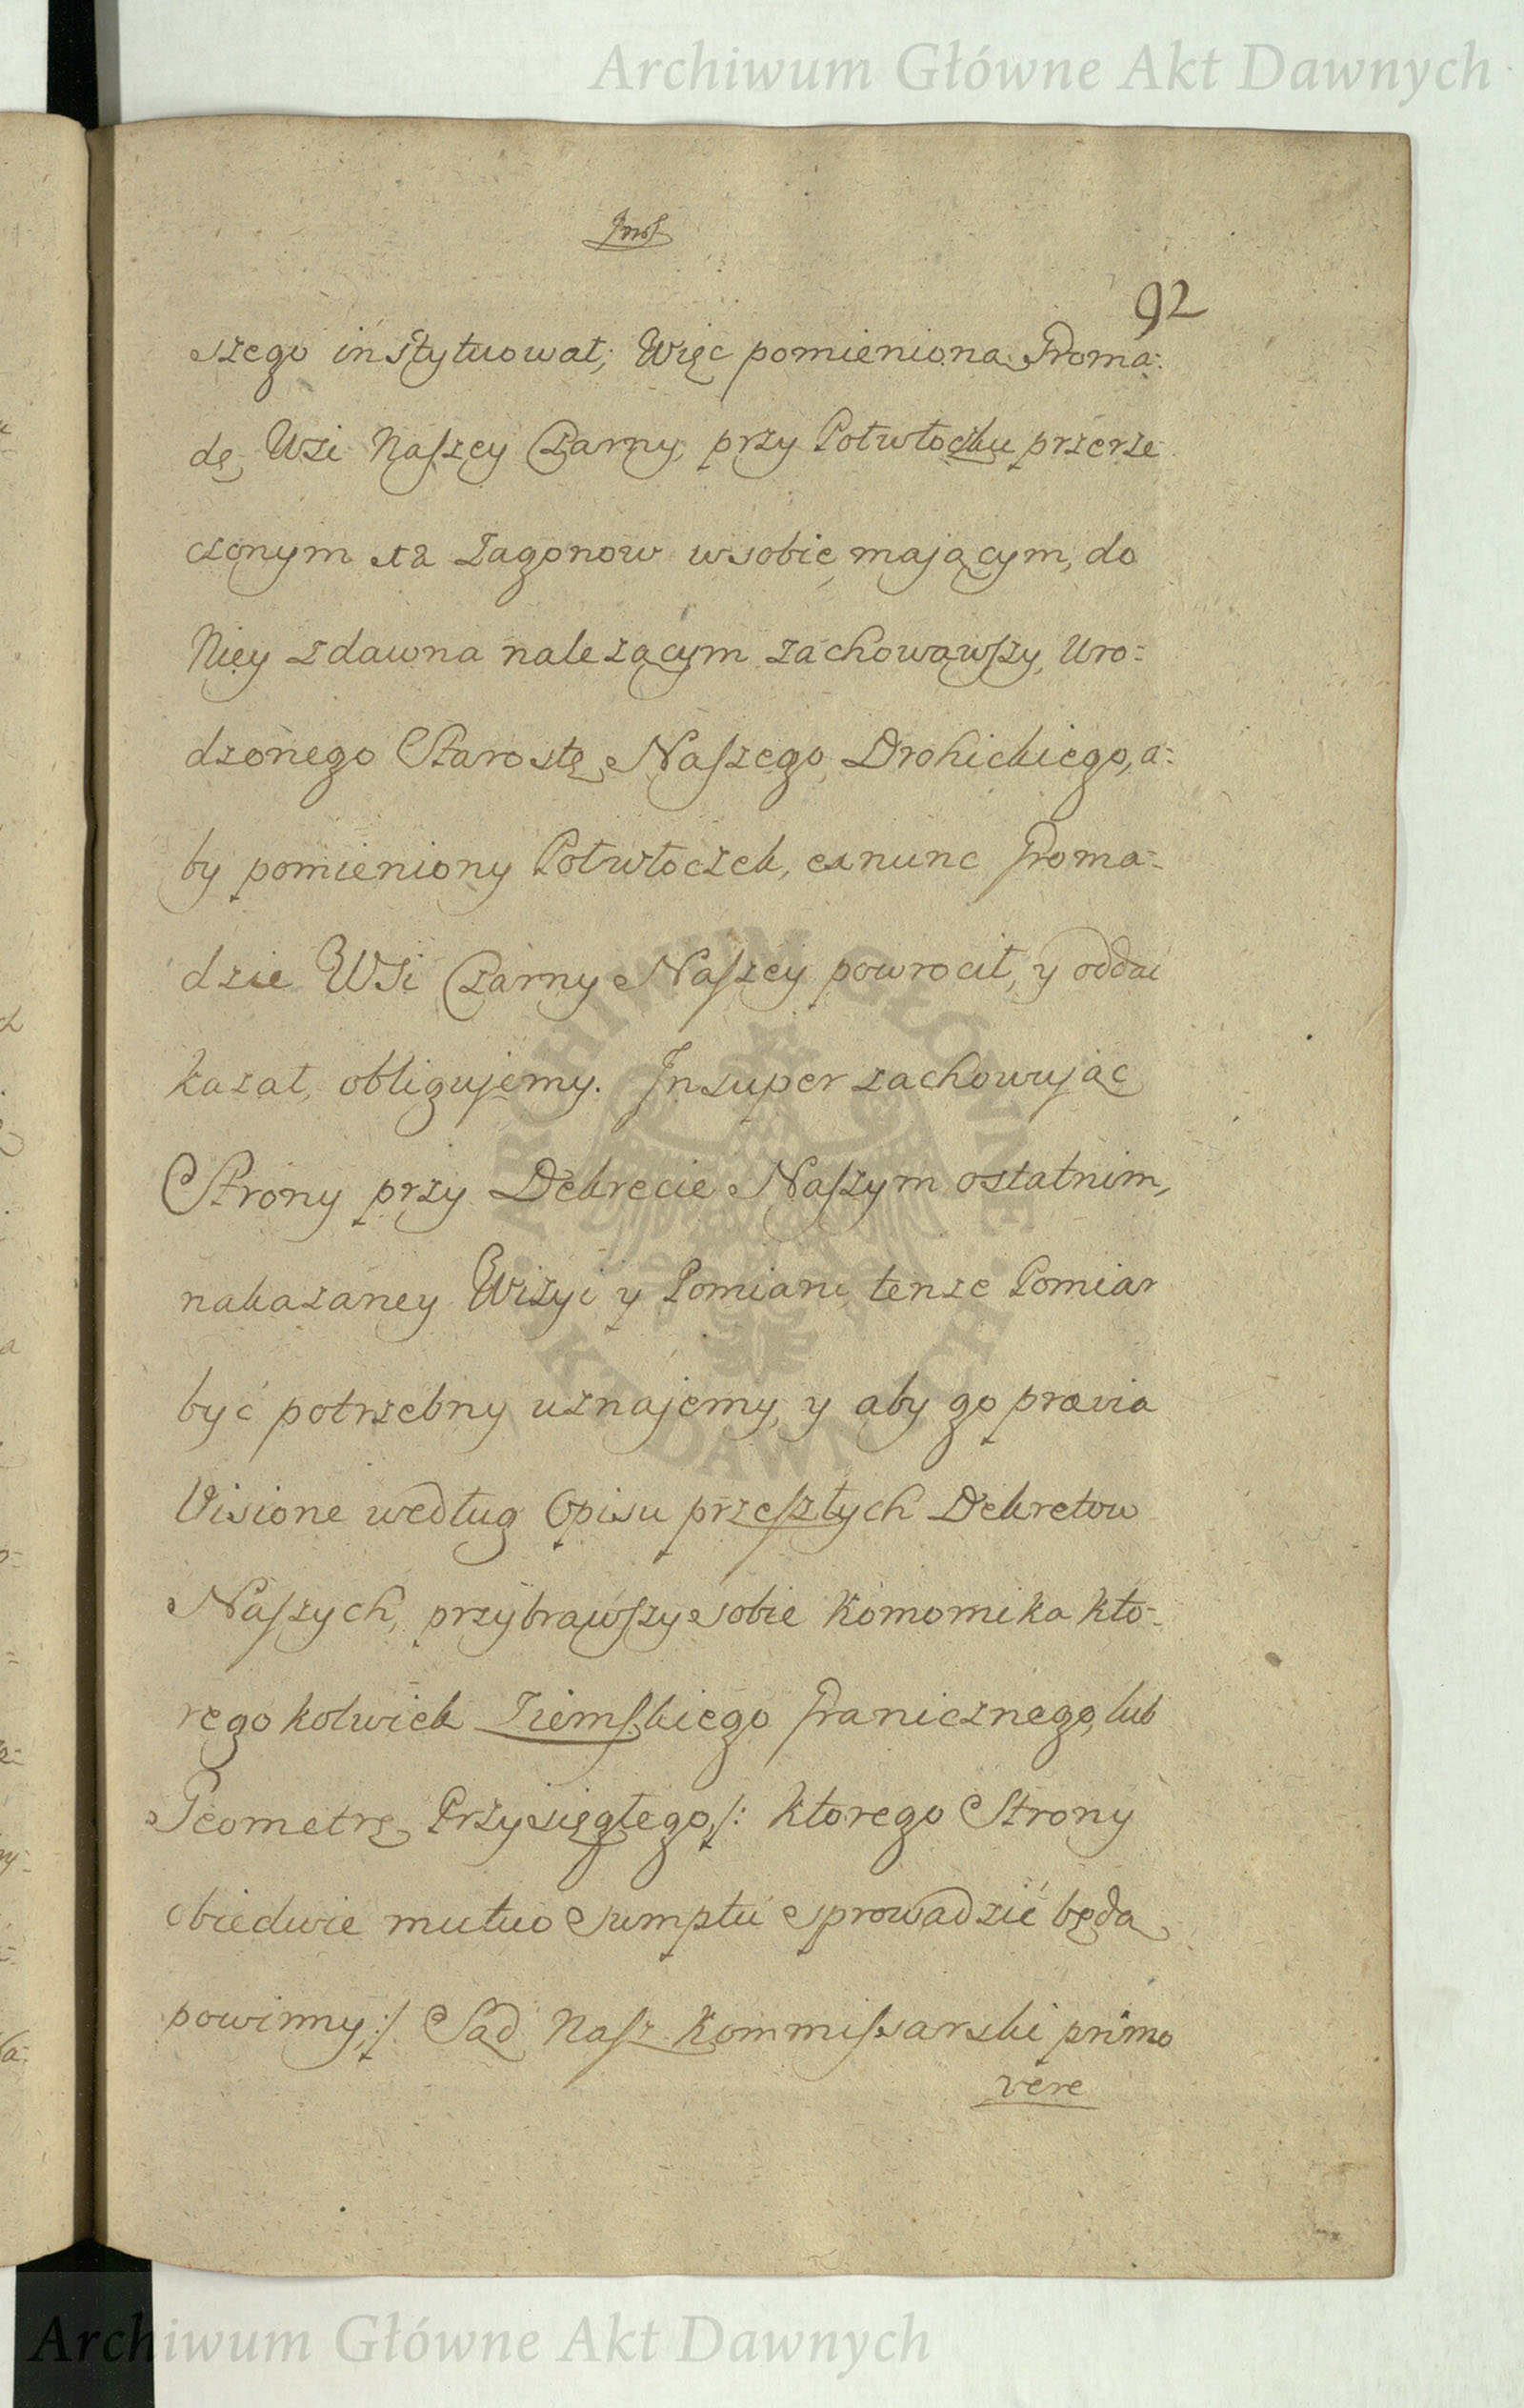 Archiwum Główne Akt Dawnych
92
szego instytuował; Więc pomieniona Groma:
dę Wsi Naszey Czarny, przy Połwłoczku przerze
czonym 12 Zagonow w sobie maiącym, do
Niey zdawna należącym zachowawszy, Uro:
dzonego Starostę Naszego Drohickiego, a:
by pomieniony Połwłoczek, ex nunc Groma:
dzie Wsi Czarny Naszey powrocił, y oddać
kazał, obligujemy. Insuper zachowując
Strony przy Dekrecie Naszym ostatnim,
nakazaney Wizyi y Pomiaru, tenże Pomiar
być potrzebny uznajemy, y aby go prævia
Visione według Opisu przeszłych Dekretow
Naszych, przybrawszy sobie Komornika kto-
regokolwiek Ziemskiego Granicznego, lub
Geometrę Przysięgłego /: ktorego Strony
obiedwie mutuo Sumptu sprowadzić będą
powinny :/ Sąd Nasz Kommissarski primo
vere
ARCHIWUM GŁÓWNE
AKT DAWNYCH
Archiwum Główne Akt Dawnych